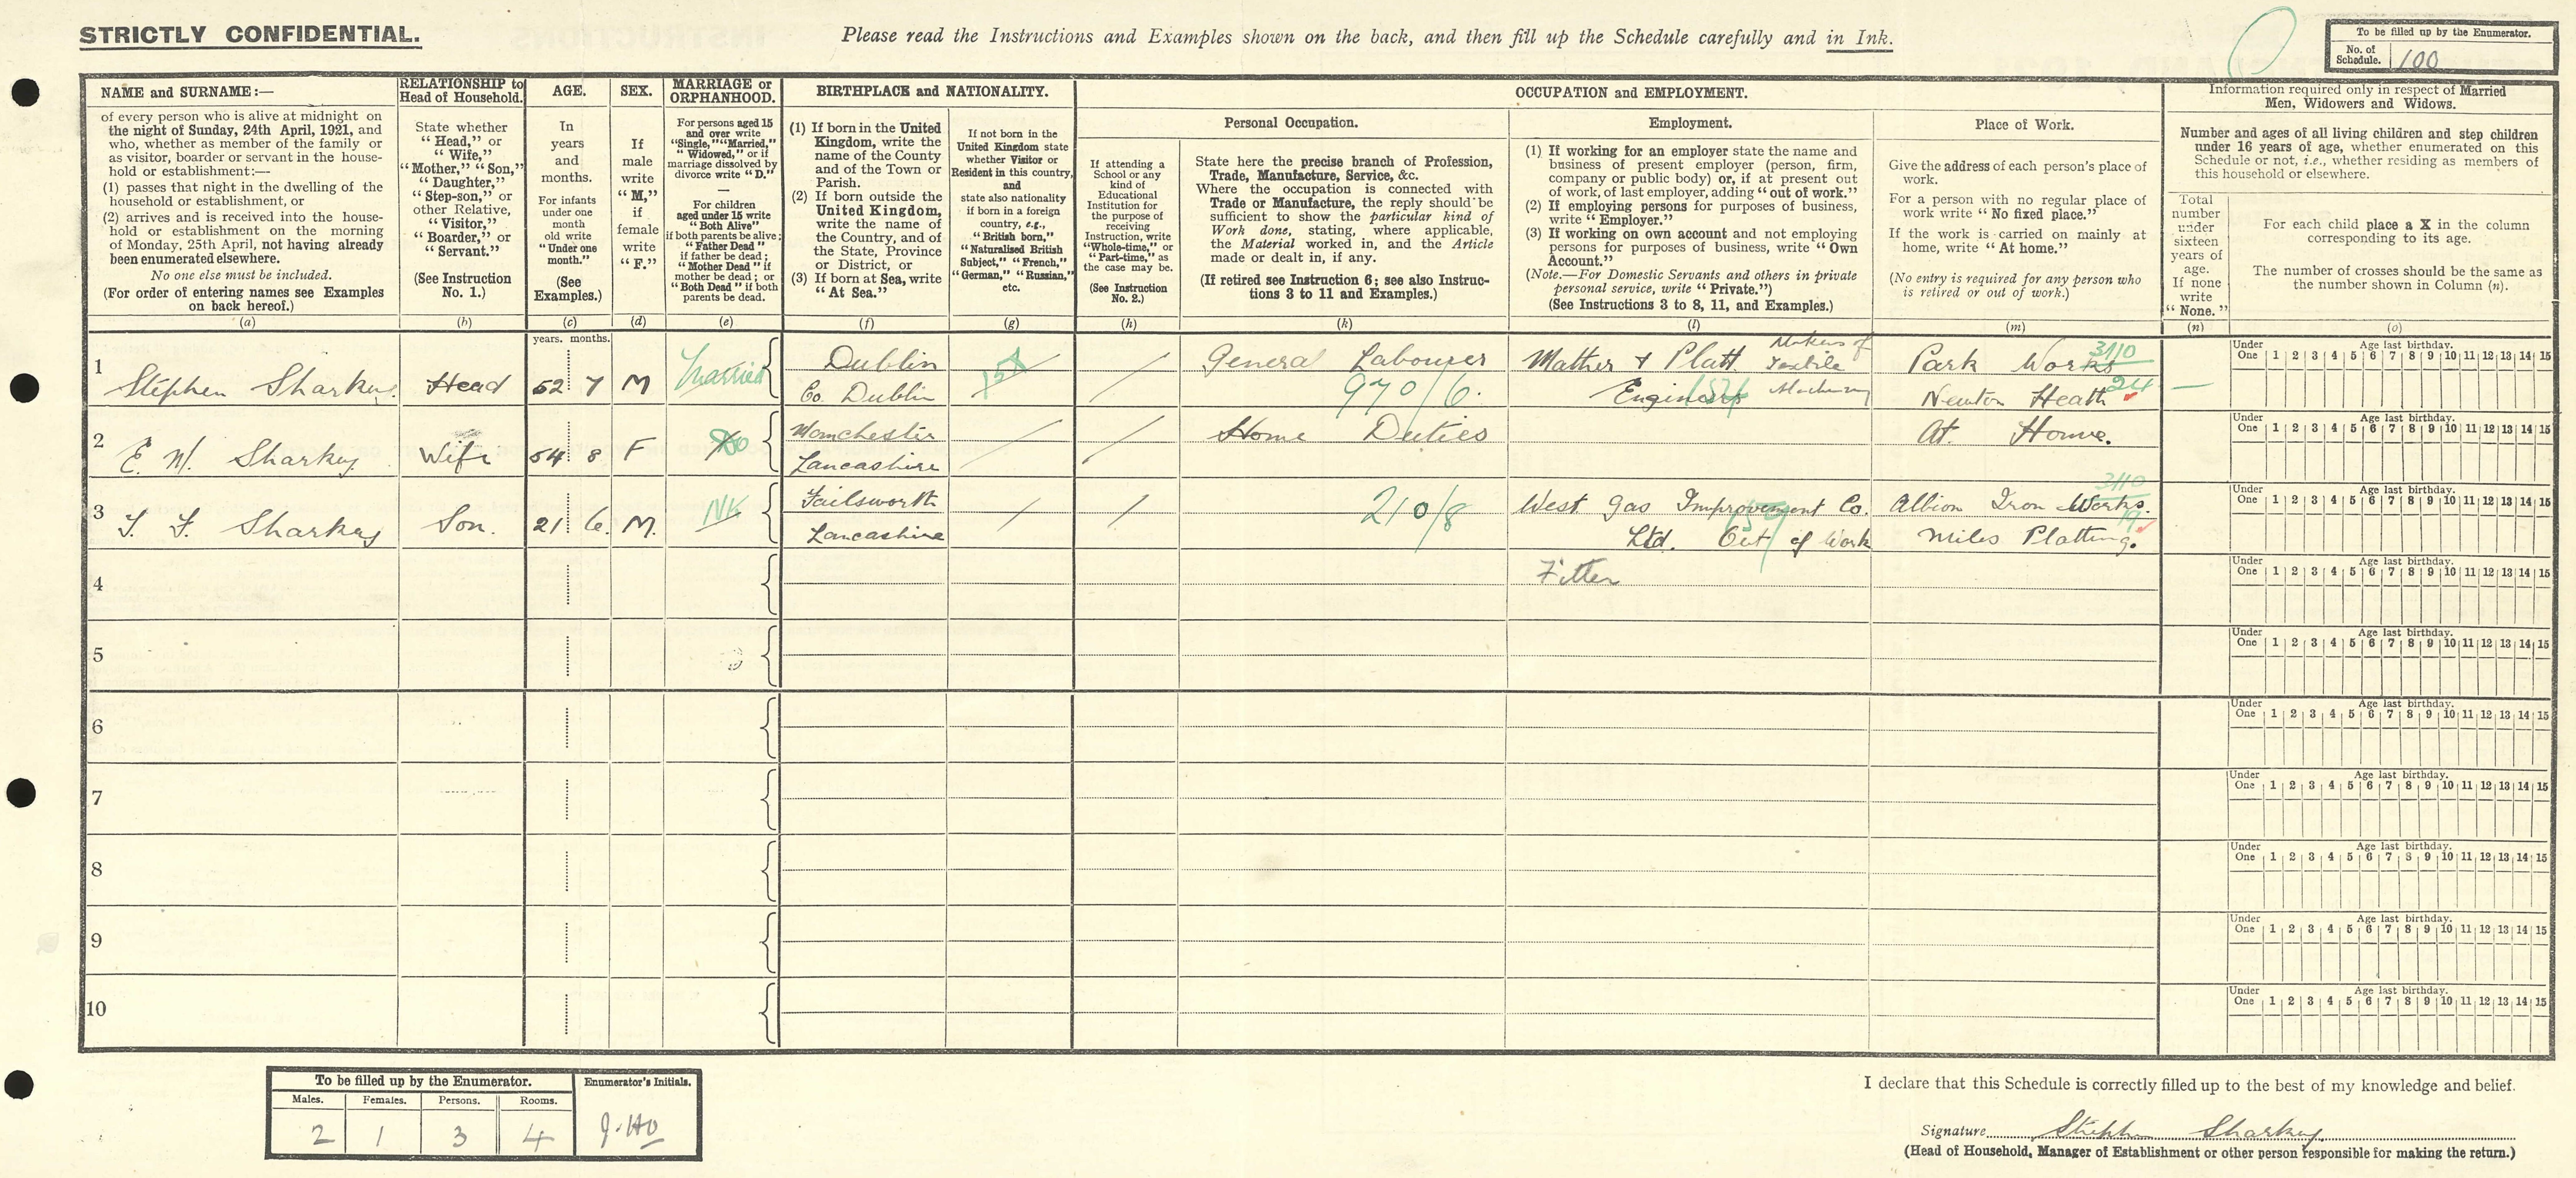 STRICTLY CONFIDENTIAL.
Please read the Instructions and Examples shown on the back, and then fill up the Schedule carefully and in Ink.
To be filled up by the Enumerator.
No. of Schedule. 100
NAME and SURNAME:—
of every person who is alive at midnight on
the night of Sunday, 24th April, 1921, and
who, whether as member of the family or
as visitor, boarder or servant in the house-
hold or establishment:—
(1) passes that night in the dwelling of the
household or establishment, or
(2) arrives and is received into the house-
hold or establishment on the morning
of Monday, 25th April, not having already
been enumerated elsewhere.
No one else must be included.
(For order of entering names see Examples
on back hereof.)
(a)
RELATIONSHIP to
Head of Household.
State whether
"Head," or
"Wife,"
"Mother," "Son,"
"Daughter,"
"Step-son," or
other Relative,
"Visitor,"
"Boarder," or
"Servant."
(See Instruction
No. 1.)
(b)
AGE.
In
years
and
months.
For infants
under one
month
old write
"Under one
month."
(See
Examples.)
(c)
SEX.
If
male
write
"M,"
if
female
write
"F."
(d)
MARRIAGE or
ORPHANHOOD.
For persons aged 15
and over write
"Single," "Married,"
"Widowed," or if
marriage dissolved by
divorce write "D."
For children
aged under 15 write
"Both Alive"
if both parents be alive;
"Father Dead"
if father be dead;
"Mother Dead" if
mother be dead; or
"Both Dead" if both
parents be dead.
(e)
BIRTHPLACE and NATIONALITY.
(1) If born in the United
Kingdom, write the
name of the County
and of the Town or
Parish.
(2) If born outside the
United Kingdom,
write the name of
the Country, and of
the State, Province
or District, or
(3) If born at Sea, write
"At Sea."
(f)
If not born in the
United Kingdom state
whether Visitor or
Resident in this country,
and
state also nationality
if born in a foreign
country, e.g.,
"British born,"
"Naturalised British
Subject," "French,"
"German," "Russian,"
etc.
(g)
OCCUPATION and EMPLOYMENT.
Personal Occupation.
If attending a
School or any
kind of
Educational
Institution for
the purpose of
receiving
Instruction, write
"Whole-time," or
"Part-time," as
the case may be.
(See Instruction
No. 2.)
(h)
State here the precise branch of Profession,
Trade, Manufacture, Service, &c.
Where the occupation is connected with
Trade or Manufacture, the reply should be
sufficient to show the particular kind of
Work done, stating, where applicable,
the Material worked in, and the Article
made or dealt in, if any.
(If retired see Instruction 6; see also Instruc-
tions 3 to 11 and Examples.)
(k)
Employment.
(1) If working for an employer state the name and
business of present employer (person, firm,
company or public body) or, if at present out
of work, of last employer, adding "out of work."
(2) If employing persons for purposes of business,
write "Employer."
(3) If working on own account and not employing
persons for purposes of business, write "Own
Account."
(Note.—For Domestic Servants and others in private
personal service, write "Private.")
(See Instructions 3 to 8, 11, and Examples.)
(l)
Place of Work.
Give the address of each person's place of
work.
For a person with no regular place of
work write "No fixed place."
If the work is carried on mainly at
home, write "At home."
(No entry is required for any person who
is retired or out of work.)
(m)
Information required only in respect of Married
Men, Widowers and Widows.
Number and ages of all living children and step children
under 16 years of age, whether enumerated on this
Schedule or not, i.e., whether residing as members of
this household or elsewhere.
Total
number
under
sixteen
years of
age.
If none
write
"None."
(n)
For each child place a X in the column
corresponding to its age.
The number of crosses should be the same as
the number shown in Column (n).
(o)
years. months.
1 Stephen Sharkey Head 52 7 M Married Dublin Co. Dublin General Labourer 970/6. Mather & Platt Engineers Makers of Textile Machinery Park Works Newton Heath 3110 24
Under One 1 2 3 4 5 6 7 8 9 10 11 12 13 14 15 Age last birthday.
2 E. M. Sharkey Wife 54 8 F Manchester Lancashire Home Duties At Home.
Under One 1 2 3 4 5 6 7 8 9 10 11 12 13 14 15 Age last birthday.
3 T. F. Sharkey Son. 21 6. M. NK Failsworth Lancashire 210/8 West Gas Improvement Co. Ltd. Out of Work Albion Iron Works. Miles Platting. 3110
Under One 1 2 3 4 5 6 7 8 9 10 11 12 13 14 15 Age last birthday.
4 Fitter
Under One 1 2 3 4 5 6 7 8 9 10 11 12 13 14 15 Age last birthday.
5
Under One 1 2 3 4 5 6 7 8 9 10 11 12 13 14 15 Age last birthday.
6
Under One 1 2 3 4 5 6 7 8 9 10 11 12 13 14 15 Age last birthday.
7
Under One 1 2 3 4 5 6 7 8 9 10 11 12 13 14 15 Age last birthday.
8
Under One 1 2 3 4 5 6 7 8 9 10 11 12 13 14 15 Age last birthday.
9
Under One 1 2 3 4 5 6 7 8 9 10 11 12 13 14 15 Age last birthday.
10
Under One 1 2 3 4 5 6 7 8 9 10 11 12 13 14 15 Age last birthday.
To be filled up by the Enumerator.
Enumerator's Initials.
Males. Females. Persons. Rooms.
2 1 3 4
I declare that this Schedule is correctly filled up to the best of my knowledge and belief.
Signature Stephen Sharkey
(Head of Household, Manager of Establishment or other person responsible for making the return.)